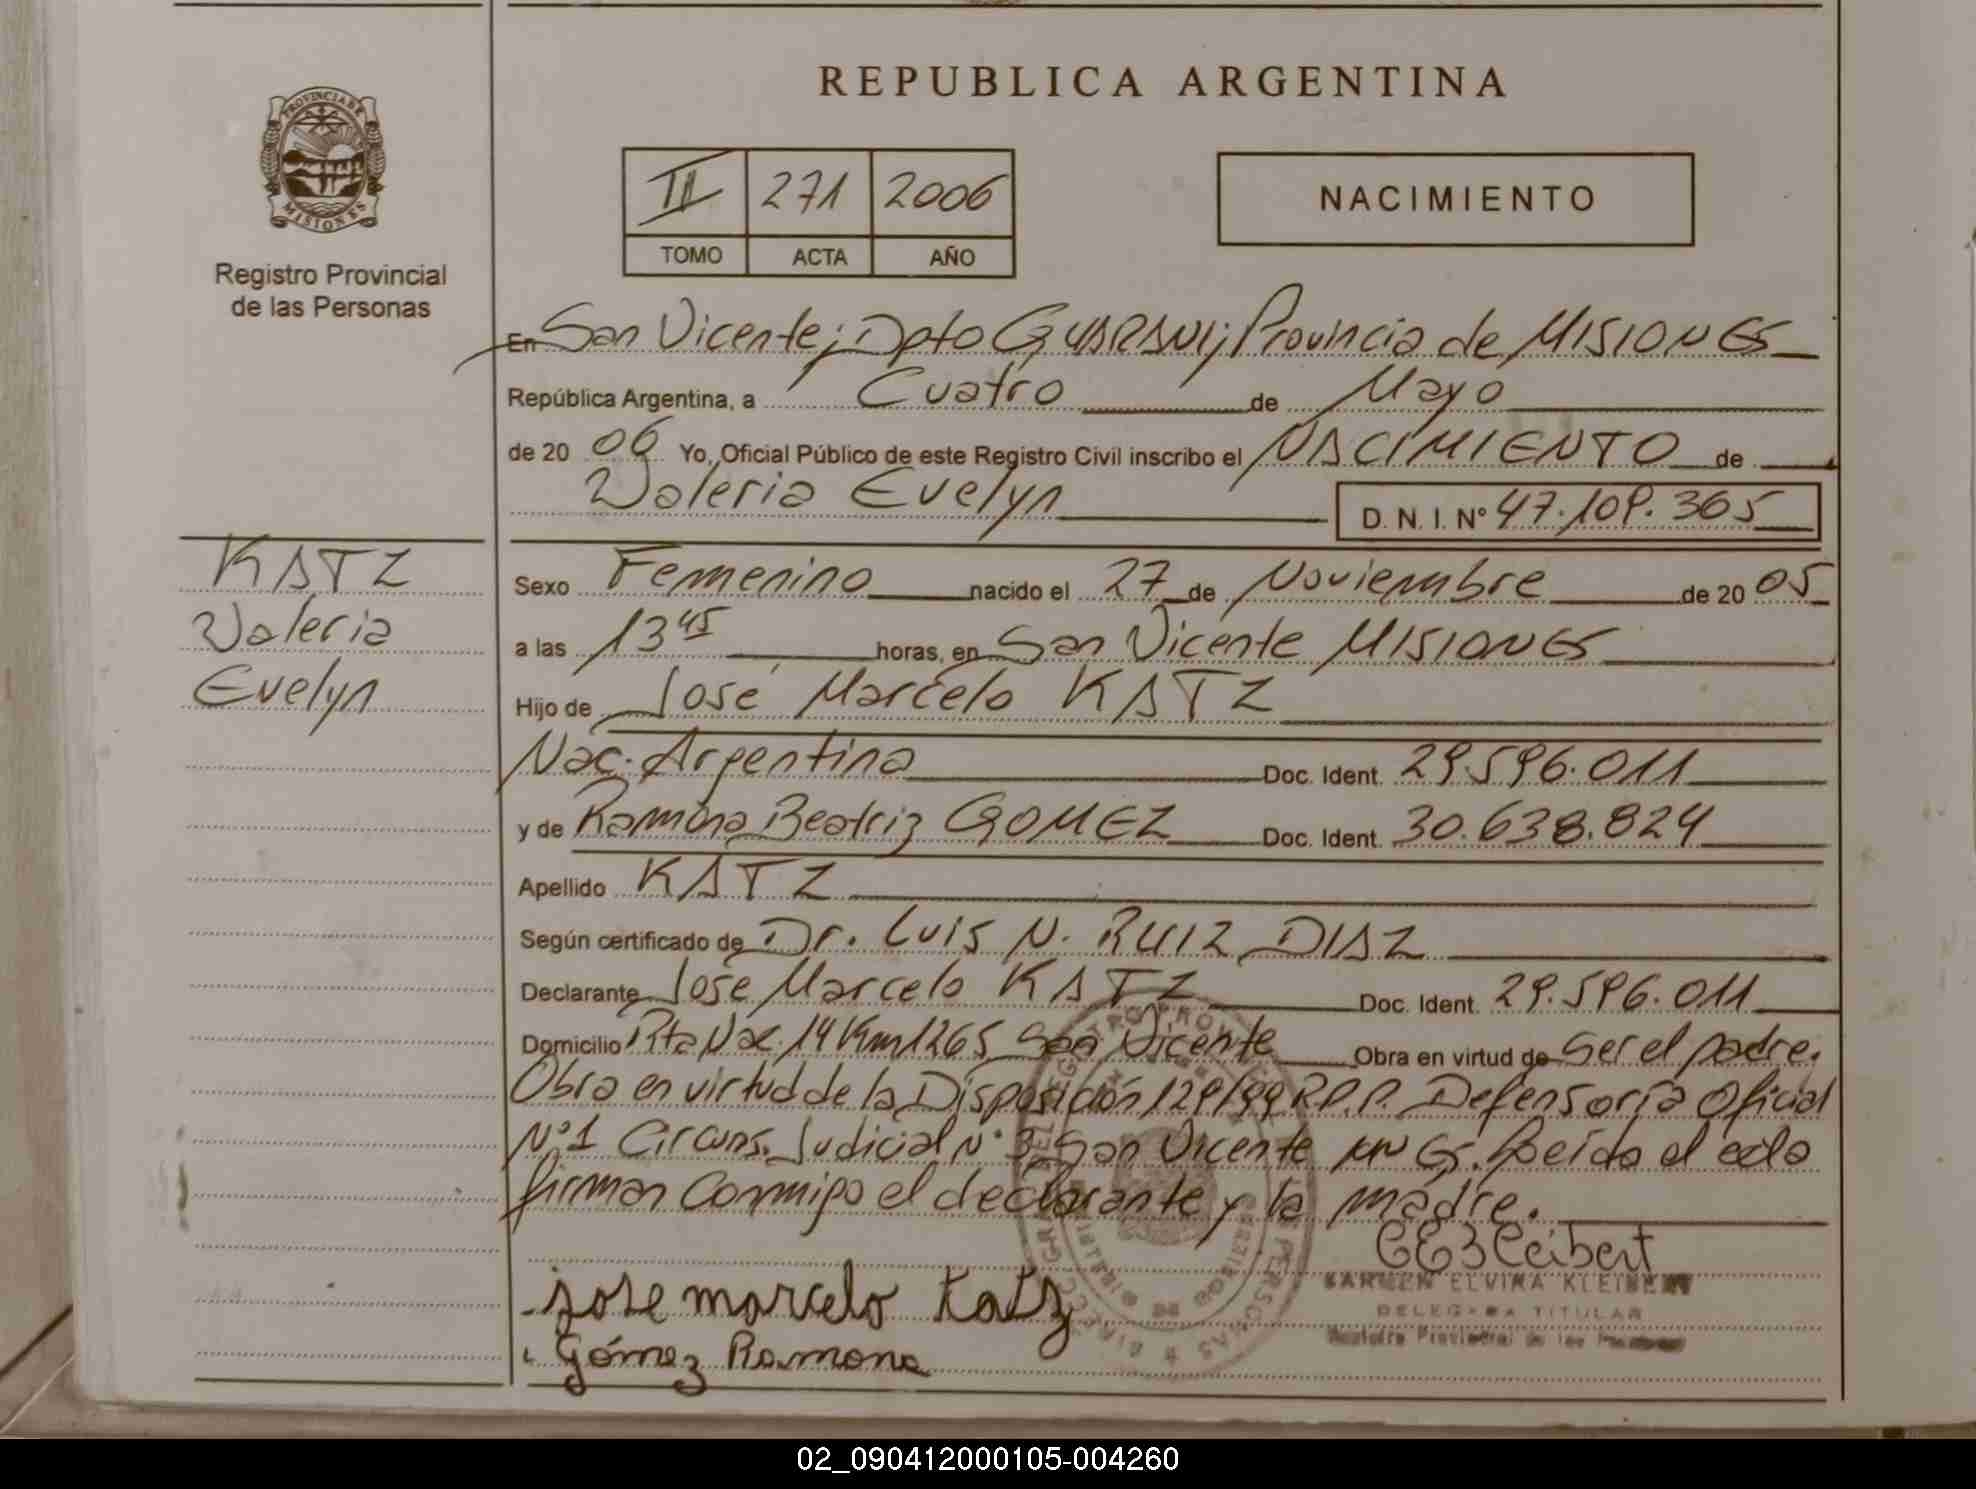 REPUBLICA ARGENTINA
PROVINCIA DE
MISIONES
Registro Provincial
de las Personas
II 271 2006
TOMO ACTA AÑO
NACIMIENTO
En San Vicente; Dpto GUARANI; Provincia de MISIONES
República Argentina, a Cuatro de Mayo
de 20 06 Yo, Oficial Público de este Registro Civil inscribo el NACIMIENTO de
Valeria Evelyn D. N. I. Nº 47.109.365
KATZ
Valeria
Evelyn
Sexo Femenino nacido el 27 de Noviembre de 20 05
a las 13 45 horas, en San Vicente MISIONES
Hijo de José Marcelo KATZ
Nac. Argentina Doc. Ident. 29.596.011
y de Ramona Beatriz GOMEZ Doc. Ident. 30.638.824
Apellido KATZ
Según certificado de Dr. Luis N. RUIZ DIAZ
Declarante José Marcelo KATZ Doc. Ident. 29.596.011
Domicilio Rta Nac. 14 Km 1265 San Vicente Obra en virtud de Ser el padre.
Obra en virtud de la Disposición 129/99 R.P.P. Defensoría Oficial
Nº 1 Circuns. Judicial Nº 3 San Vicente Mnes. Leída el acta
firman conmigo el declarante y la madre.
jose marcelo Katz
Gómez Ramona
KARMEN ELVIRA KLEIBERT
DELEGADA TITULAR
Registro Provincial de las Personas
02_090412000105-004260